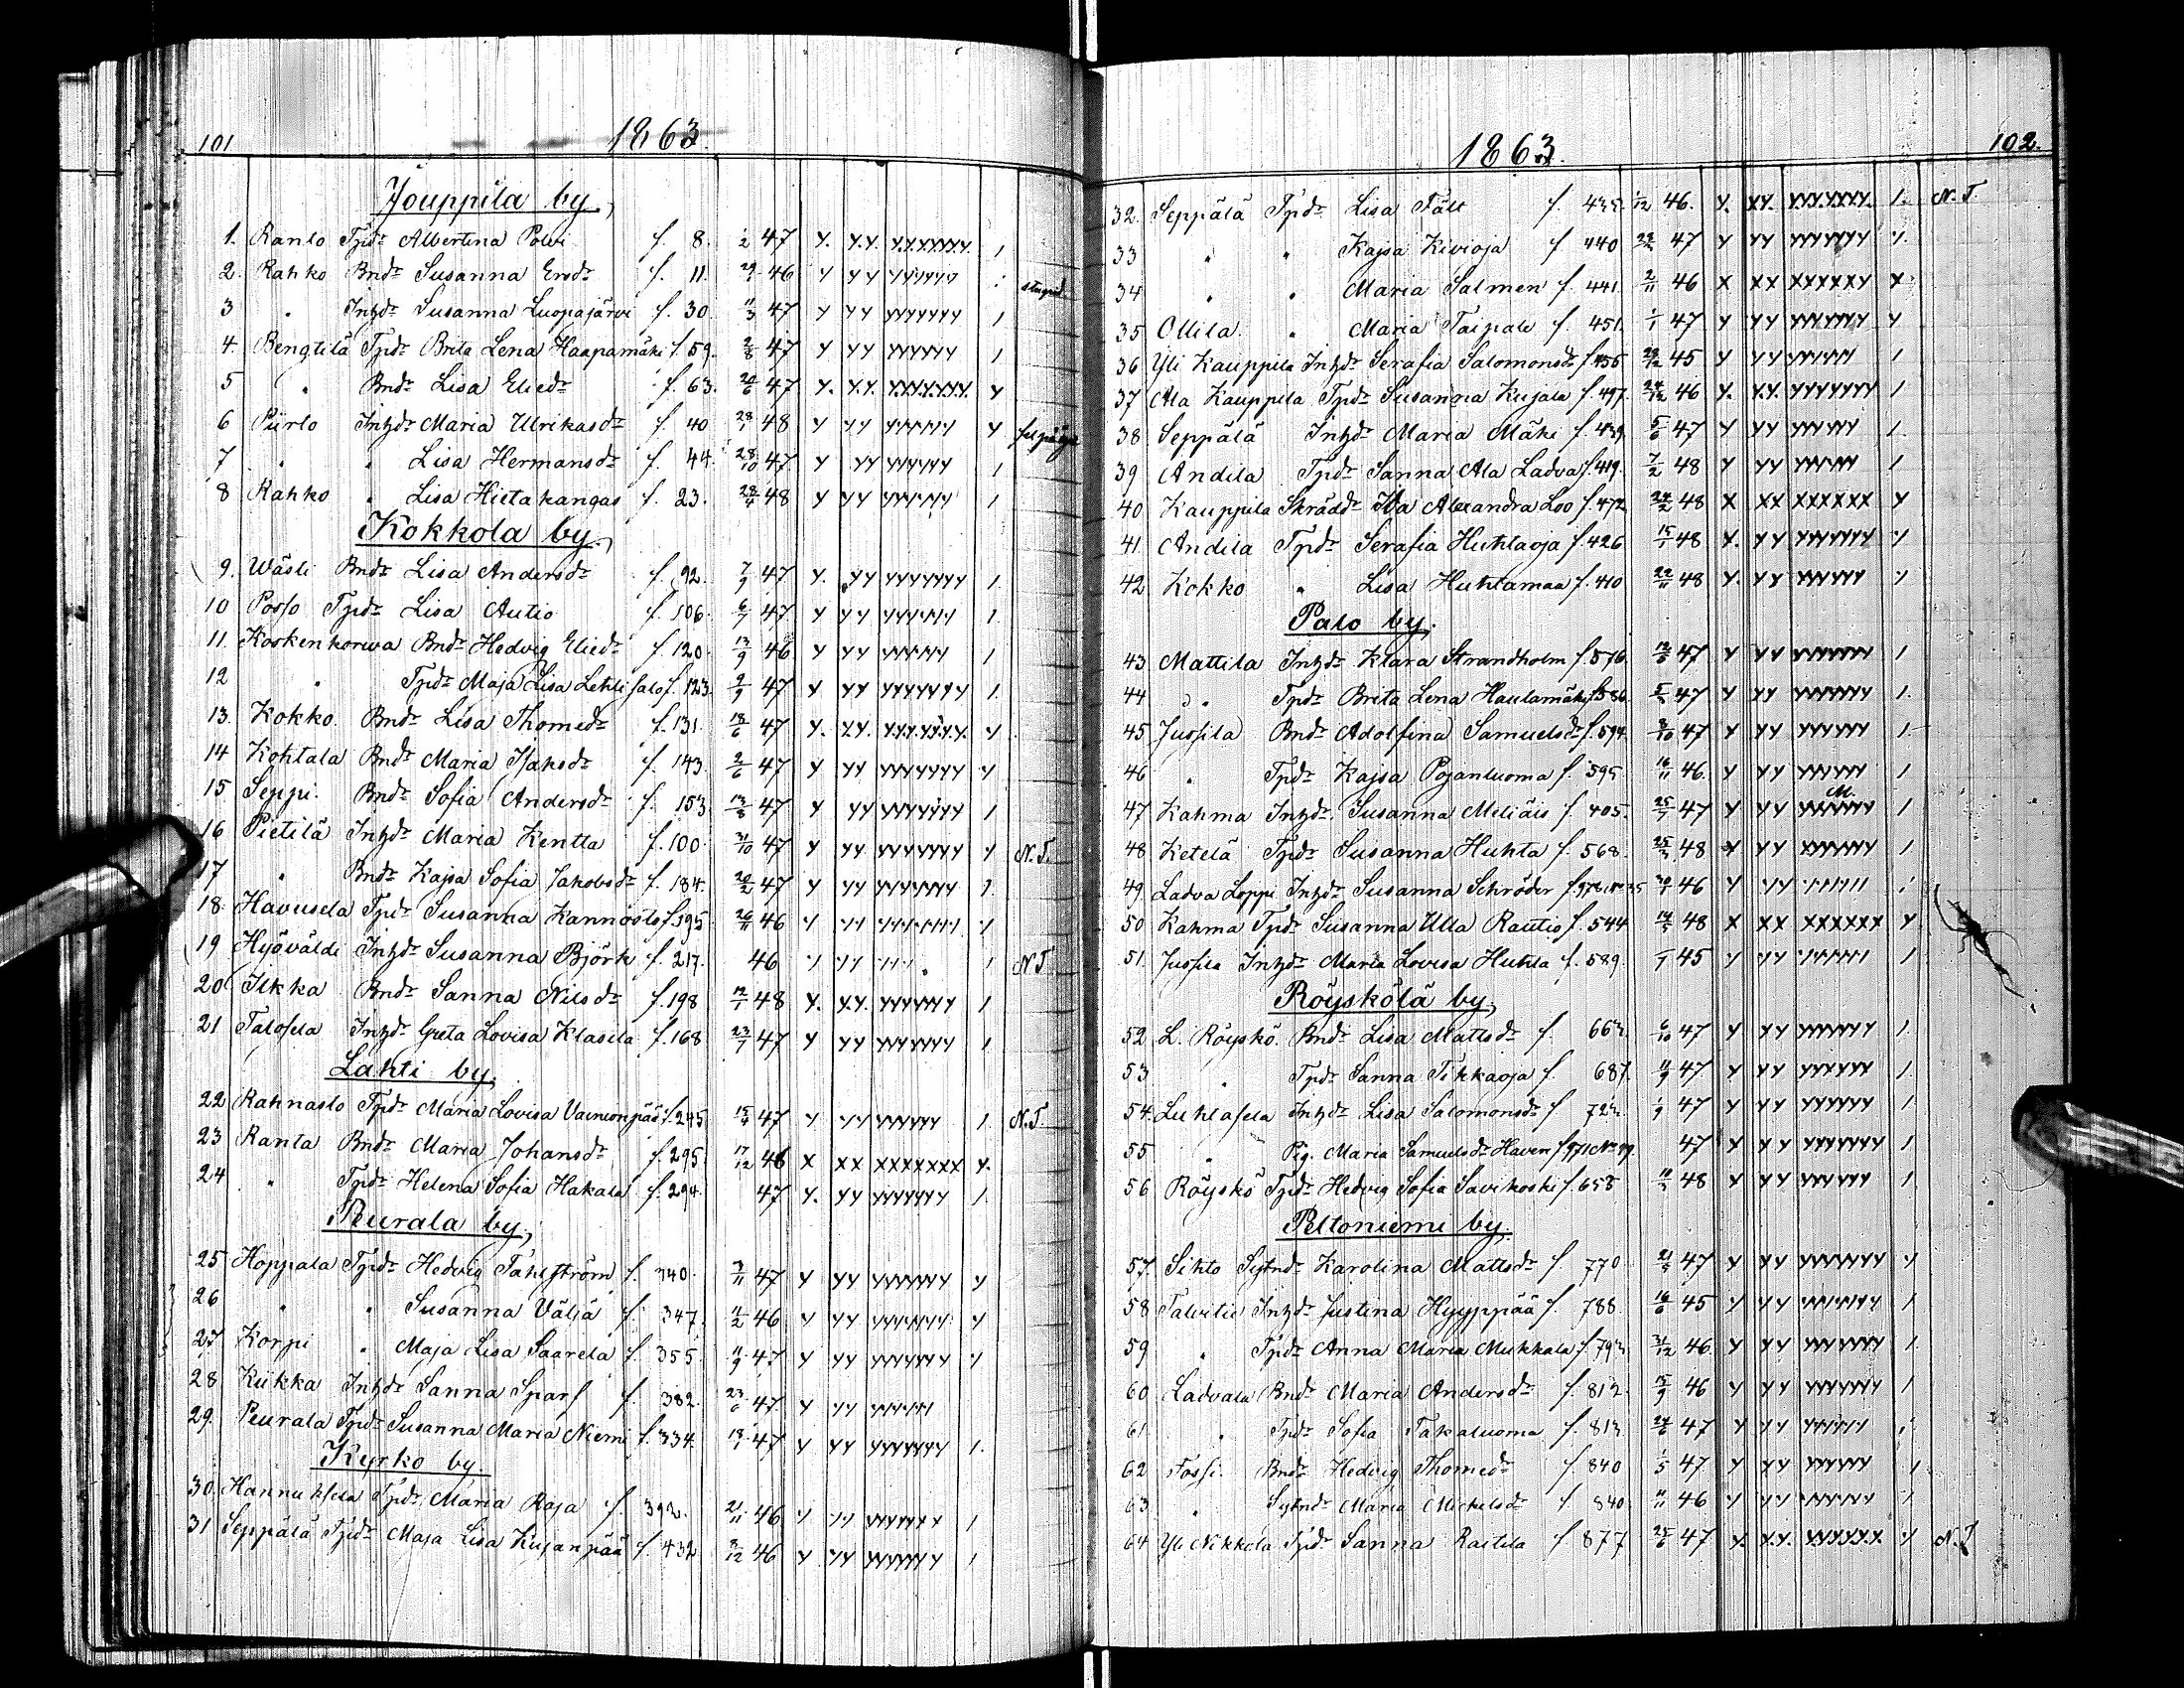 101 1863.
Jouppila by.
1. Ranto Tpdr Albertina Polvi f. 8. 47 Y. Y.Y. Y.Y.XXXXY. 1
2. Rahko Bndr Susanna Ersdr f. 11. 29/1 46 Y YY YYYYYY stupid
3 " Inhdr Susanna Luopajärvi f. 30. 11/3 47 Y YY YYYYYYY 1
4. Bengtilä Tpdr Brita Lena Haapamäki f. 59. 2/8 47 Y YY YYYYYY 1
5 " Bndr Lisa Eliedr f. 63. 20/6 47 Y. Y.Y. Y.Y.Y.Y.Y.Y. Y
6 Piirto Inhdr Maria Ulrikasdr f. 40 28/1 48 Y YY YYYYYY Y
7 " " Lisa Hermansdr f. 44. 28/10 47 Y YY YYYYYY 1
8 Rahko " Lisa Hietakangas f. 23. 48 Y YY YYYYYY 1
Kokkola by.
9. Wästi Bndr Lisa Andersdr f. 92. 7/9 47 Y. YY YYYYYYY 1.
10 Posso Tpdr Lisa Autio f. 106. 6/7 47 Y YY YYYYYY 1.
11. Koskenkorwa Bndr Hedvig Eliedr f. 120. 13/9 46 Y YY YYYYYY 1
12 " Tpdr Maja Lisa Lehtisalo f. 123. 9/9 47 Y YY YYYYYYY 1.
13. Kokko Bndr Lisa Thomedr f. 131. 18/6 47 Y. Y.Y. YYY.YY.Y.Y. Y
14 Kohtala Bndr Maria Isaksdr f. 143. 2/6 47 Y YY YYYYYYY Y
15 Seppi. Bndr Sofia Andersdr f. 153 13/8 47 Y YY YYYYYYY 1
16 Pietilä Inhdr Maria Kentta f. 100. 31/10 47 Y YY YYYYYYY Y N.T.
17 " Bndr Kajsa Sofia Jakobsdr f. 184. 20/2 47 Y YY YYYYYYY 1.
18. Havusela Tpdr Susanna Kannosto f. 195. 26/11 46 Y YY YYYYYYY Y
19 Hyöväldi Inhdr Susanna Björk f. 217. 46 Y YY YYY 1 N.T.
20 Ilkka Bndr Sanna Nilsdr f. 198 12/1 48 Y. Y.Y. YYYYYYY 1
21 Talosela Inhdr Greta Lovisa Klasila f. 168 23/7 47 Y YY YYYYYYY 1
Lahti by.
22 Rahnasto Tpdr Maria Lovisa Vainionpää f. 245 15/4 47 Y YY YYYYYY 1. N.T.
23 Ranta Bndr Maria Johansdr f. 295. 17/12 46 X XX XXXXXXX Y.
24 " Tpdr Helena Sofia Hakala f. 294. 47 Y. YY YYYYYYY 1.
Peurala by.
25 Hoppala Tpdr Hedvig Tahlström f. 340. 3/11 47 Y YY YYYYYY Y
26 " " Susanna Väljä f. 347. 46 Y YY YYYYYYY Y
27 Korpi " Maja Lisa Saarela f. 355. 11/9 47 Y YY YYYYYYY Y
28 Kukka Inhdr Sanna Sparf f. 382. 23/6 47 Y YY YYYYYY
29. Peurala Tpdr Susanna Maria Niemi f. 334. 18/1 47 Y YY YYYYYYY 1.
Kyrko by.
30. Hannuksela Tpdr Maria Raja f. 392. 21/11 46 Y YY YYYYYYY 1
31 Seppälä Tpdr Maja Lisa Kujanpää f. 432 8/12 46 Y YY YYYYYYY 1
1863. 102.
32. Seppälä Tpdr Lisa Fält f. 435. 1/12 46. Y. XY. YYY.YYYY. 1. N.T.
33 " " Kajsa Kivioja f 440 47 Y YY YYYYYYY Y.
34 " " Maria Salmen f. 441. 2/11 46 X XX XXXXXXY X
35 Ollila " Maria Taipale f. 451. 1/1 47 Y YY YYYYYYY Y
36 Yli Kauppila Inhdr Serafia Salomonsdr f. 456 29/12 45 Y YY YYYYYY 1
37 Ala Kauppila Tpdr Susanna Kujala f. 497. 24/12 46 Y. Y.Y. YYYYYYYY 1
38 Seppälä Inhdr Maria Mäki f. 439. 5/6 47 Y YY YYYYYY 1.
39 Andila Tpdr Sanna Ala Ladva f. 419. 7/2 48 Y YY YYYYYY 1
40 Kauppila Skräddr Ida Alexandra Loo f. 472 48 X XX XXXXXX Y
41 Andila Tpdr Serafia Huhtaoja f. 426 15/1 48 Y. YY YYYYYYY Y
42 Kokko " Lisa Huhtamaa f. 410 22/11 48 Y. YY YYYYYY Y
Palo by.
43 Mattila Inhdr Klara Strandholm f. 576 12/8 47 Y YY YYYYYYY 1
44 " Tpdr Brita Lena Hautamäki f. 586 47 Y YY YYYYYY 1.
45 Jussila Bndr Adolfina Samuelsdr f. 594 8/10 47 Y YY YYYYYY 1.
46 " Tpdr Kajsa Pojanluoma f. 595. 16/11 46. Y YY YYYYYY 1
47 Kahma Inhdr Susanna Meliäis f. 405. 25/7 47 Y YY YYYYYY 1
48 Ketelä Tpdr Susanna Huhta f. 568. 25/3 48 Y YY YYYYYYY 1
49. Ladva Loppi Inhdr Susanna Schröder 46 Y YY YYYYYY 1
50 Kahma Tpdr Susanna Ulla Rautio f. 544 48 X XX XXXXXXX Y
51. Jussila Inhdr Maria Lovisa Huhta f. 589. 45 Y YY YYYYYY 1
Röyskölä by.
52 L. Röyskö Bndr Lisa Mattsdr f. 663. 6/10 47 Y YY YYYYYYY 1.
53 " Tpdr Sanna Tikkaoja f. 687. 11/9 47 Y YY YYYYYY 1.
54. Luhtasela Inhdr Lisa Salomonsdr f. 723. 1/9 47 Y YY YYYYYY 1
55 " Pig. Maria Samuelsdr Haven f 971 No 19. 47 Y YY YYYYYYY 1
56 Röyskö Tpdr Hedvig Sofia Savikoski f. 658 48 Y YY YYYYYY 1
Peltoniemi by.
57. Sihto Sytndr Karolina Mattsdr f. 770 47 Y YY YYYYYYY Y
58 Talvitie Inhdr Justina Hyyppää f. 788. 16/6 45 Y YY YYYYYYY 1
59 " Tpdr Anna Maria Mukkala f. 793 31/12 46. Y YY YYYYYYY 1.
60 Ladvala Bndr Maria Andersdr f. 812. 15/9 46 Y YY YYYYYYY 1
61. " Tpdr Sofia Takaluoma f. 813. 47 Y YY YYYYYY
62 Fossi. Bndr Hedvig Thomedr f. 840 1/5 47 Y YY YYYYYY 1
63 " Sytndr Maria Michelsdr f. 840 46 Y YY YYYYYYY 1
64 Yli Nikkola Tpdr Sanna Raitila f. 877 25/6 47 Y. Y.Y. YYYYY.Y. Y N.T.